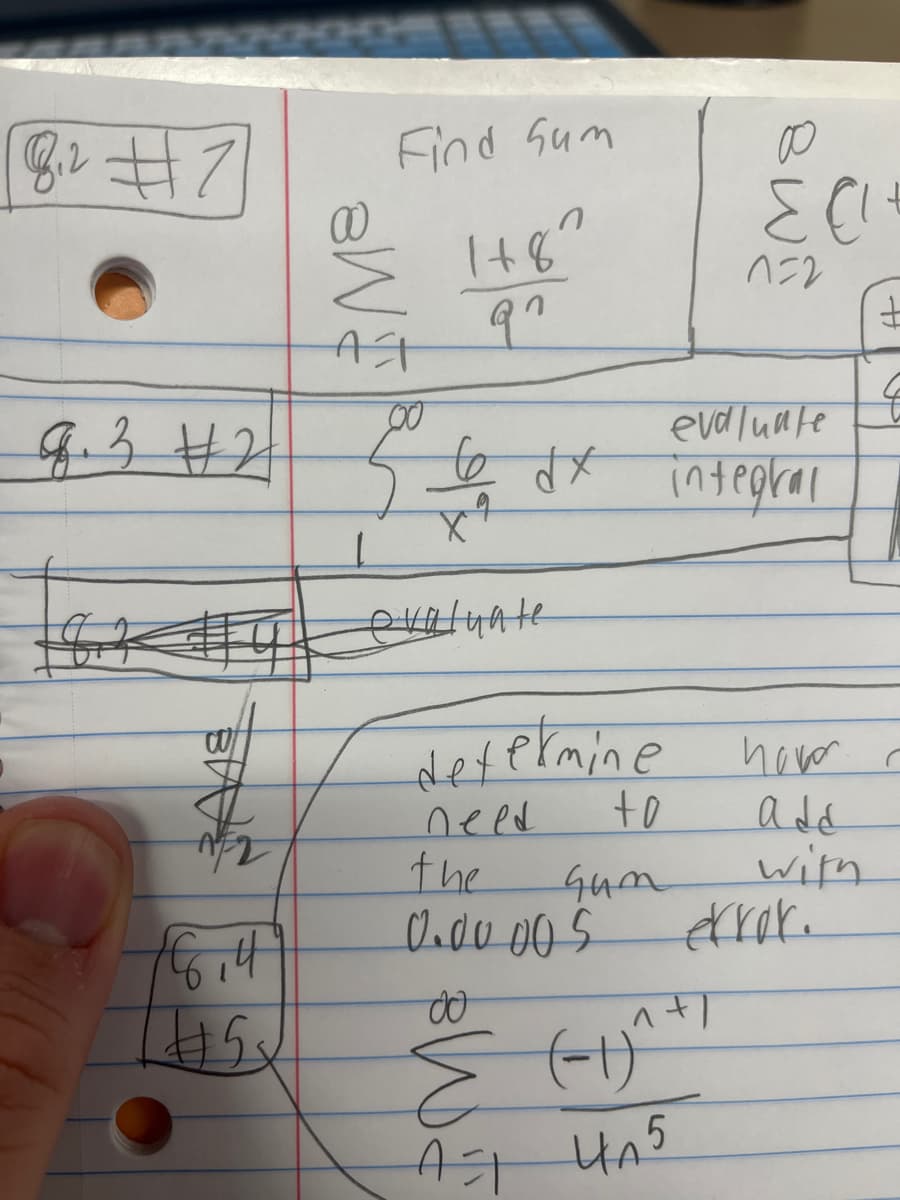 8.2 #7
Find Sum
∞
Σ 1+8^n / 9^n
n=1
∞
Σ (1+
n=2
#
8.3 #2
∞
∫ 6/x^9 dx
1
evaluate
integral
8.3 #4
evaluate
∞
Σ
n=2
8.4
#5
determine how
need to add
the sum with
0.00005 error.
∞
Σ (-1)^n+1 / 4n^5
n=1